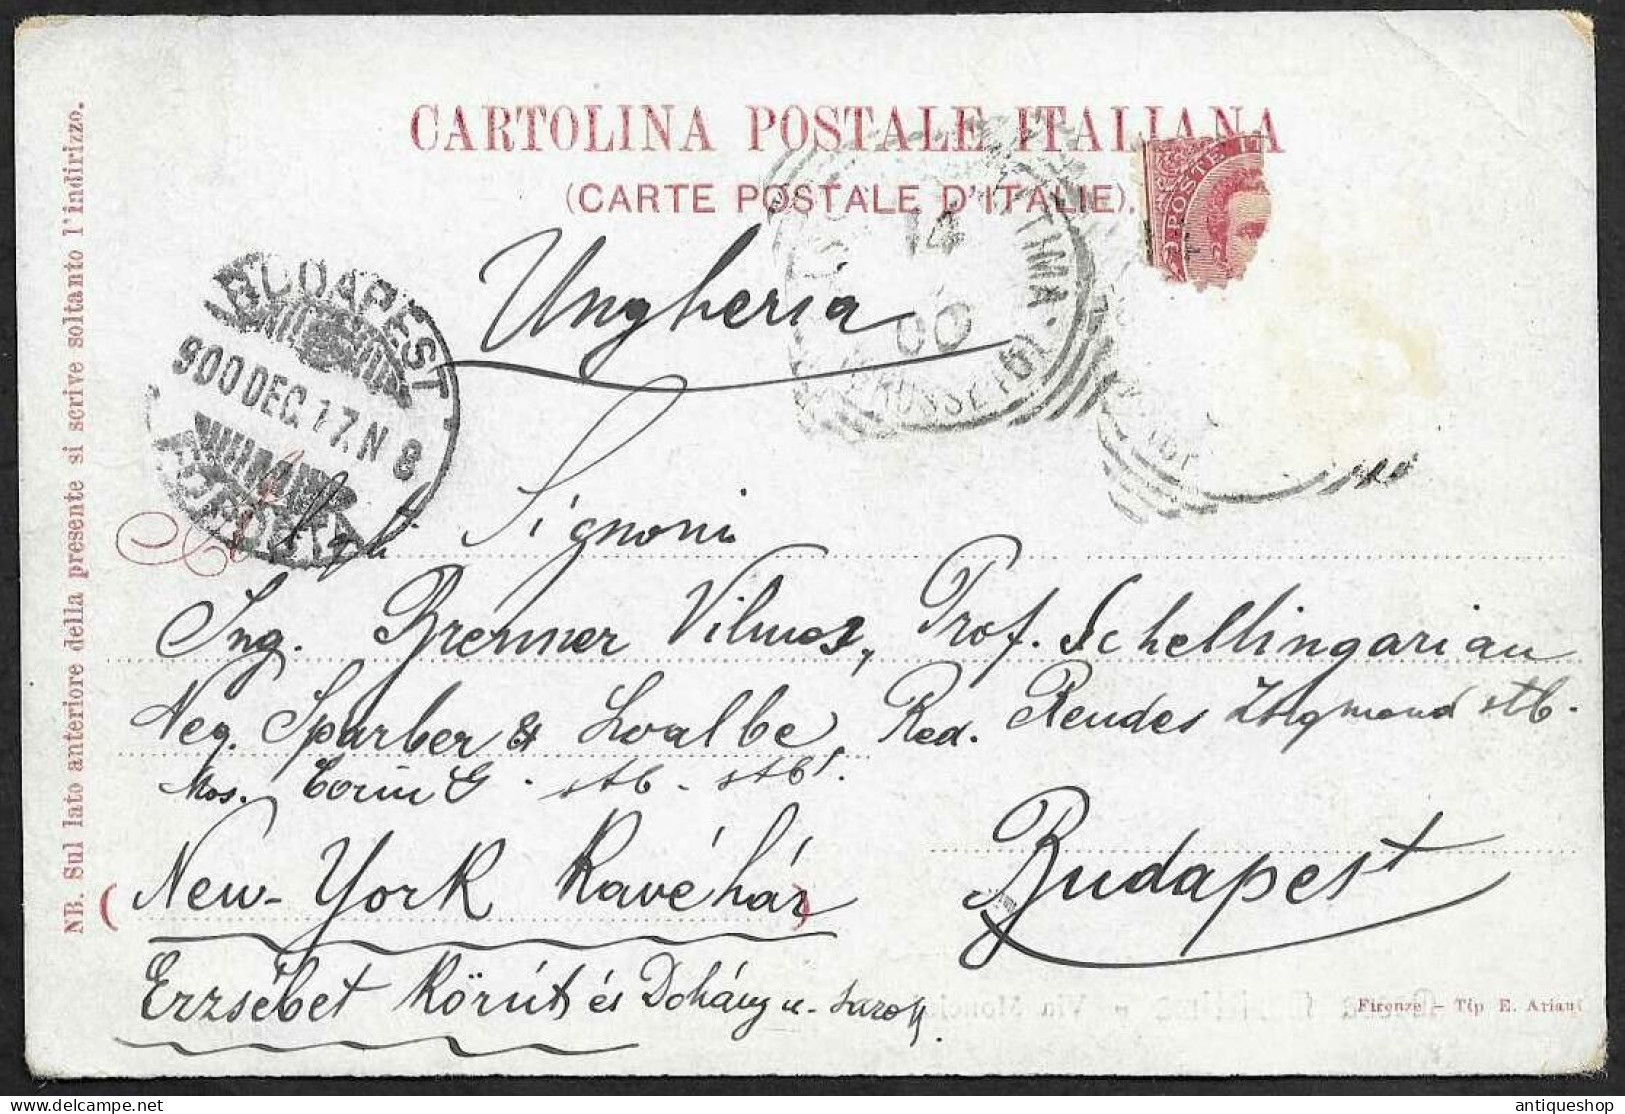 CARTOLINA POSTALE ITALIANA
(CARTE POSTALE D'ITALIE).
POSTE
NB. Sul lato anteriore della presente si scrive soltanto l'indirizzo.
BUDAPEST
900 DEC. 17. N 8
FŐPOSTA
14
00
TIMA
(GROSSETO)
Ungheria
Agli Signori
Ing. Brenner Vilmos, Prof. Schellingarian
Neg. Sparber & Loalbe, Red. Rendes Zsigmond stb.
Mos. Corin G. stb. stb.
(New-York Kavéház)
Budapest
Erzsébet Körút és Dohány u. sarok
Firenze - Tip E. Ariani
Via Moncio
antiqueshop